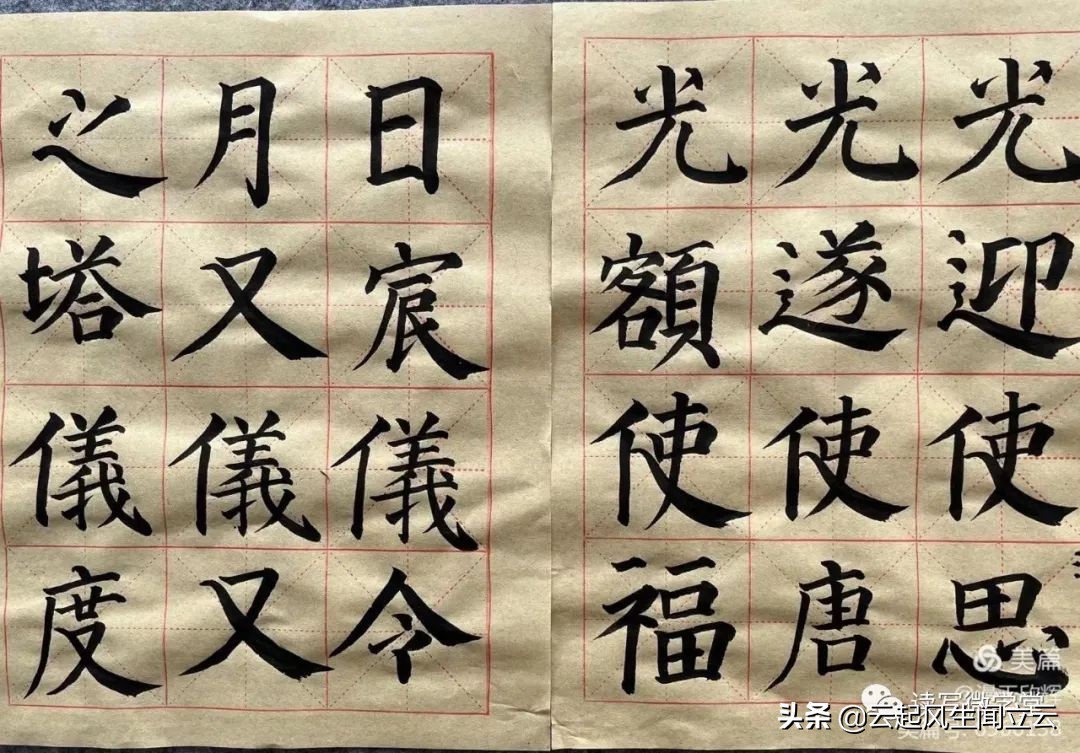 光迎使思
光遂使唐
光額使福
日宸儀令
月又儀又
之塔儀度
美篇
读写微学堂
头条 @云起风生闻立云